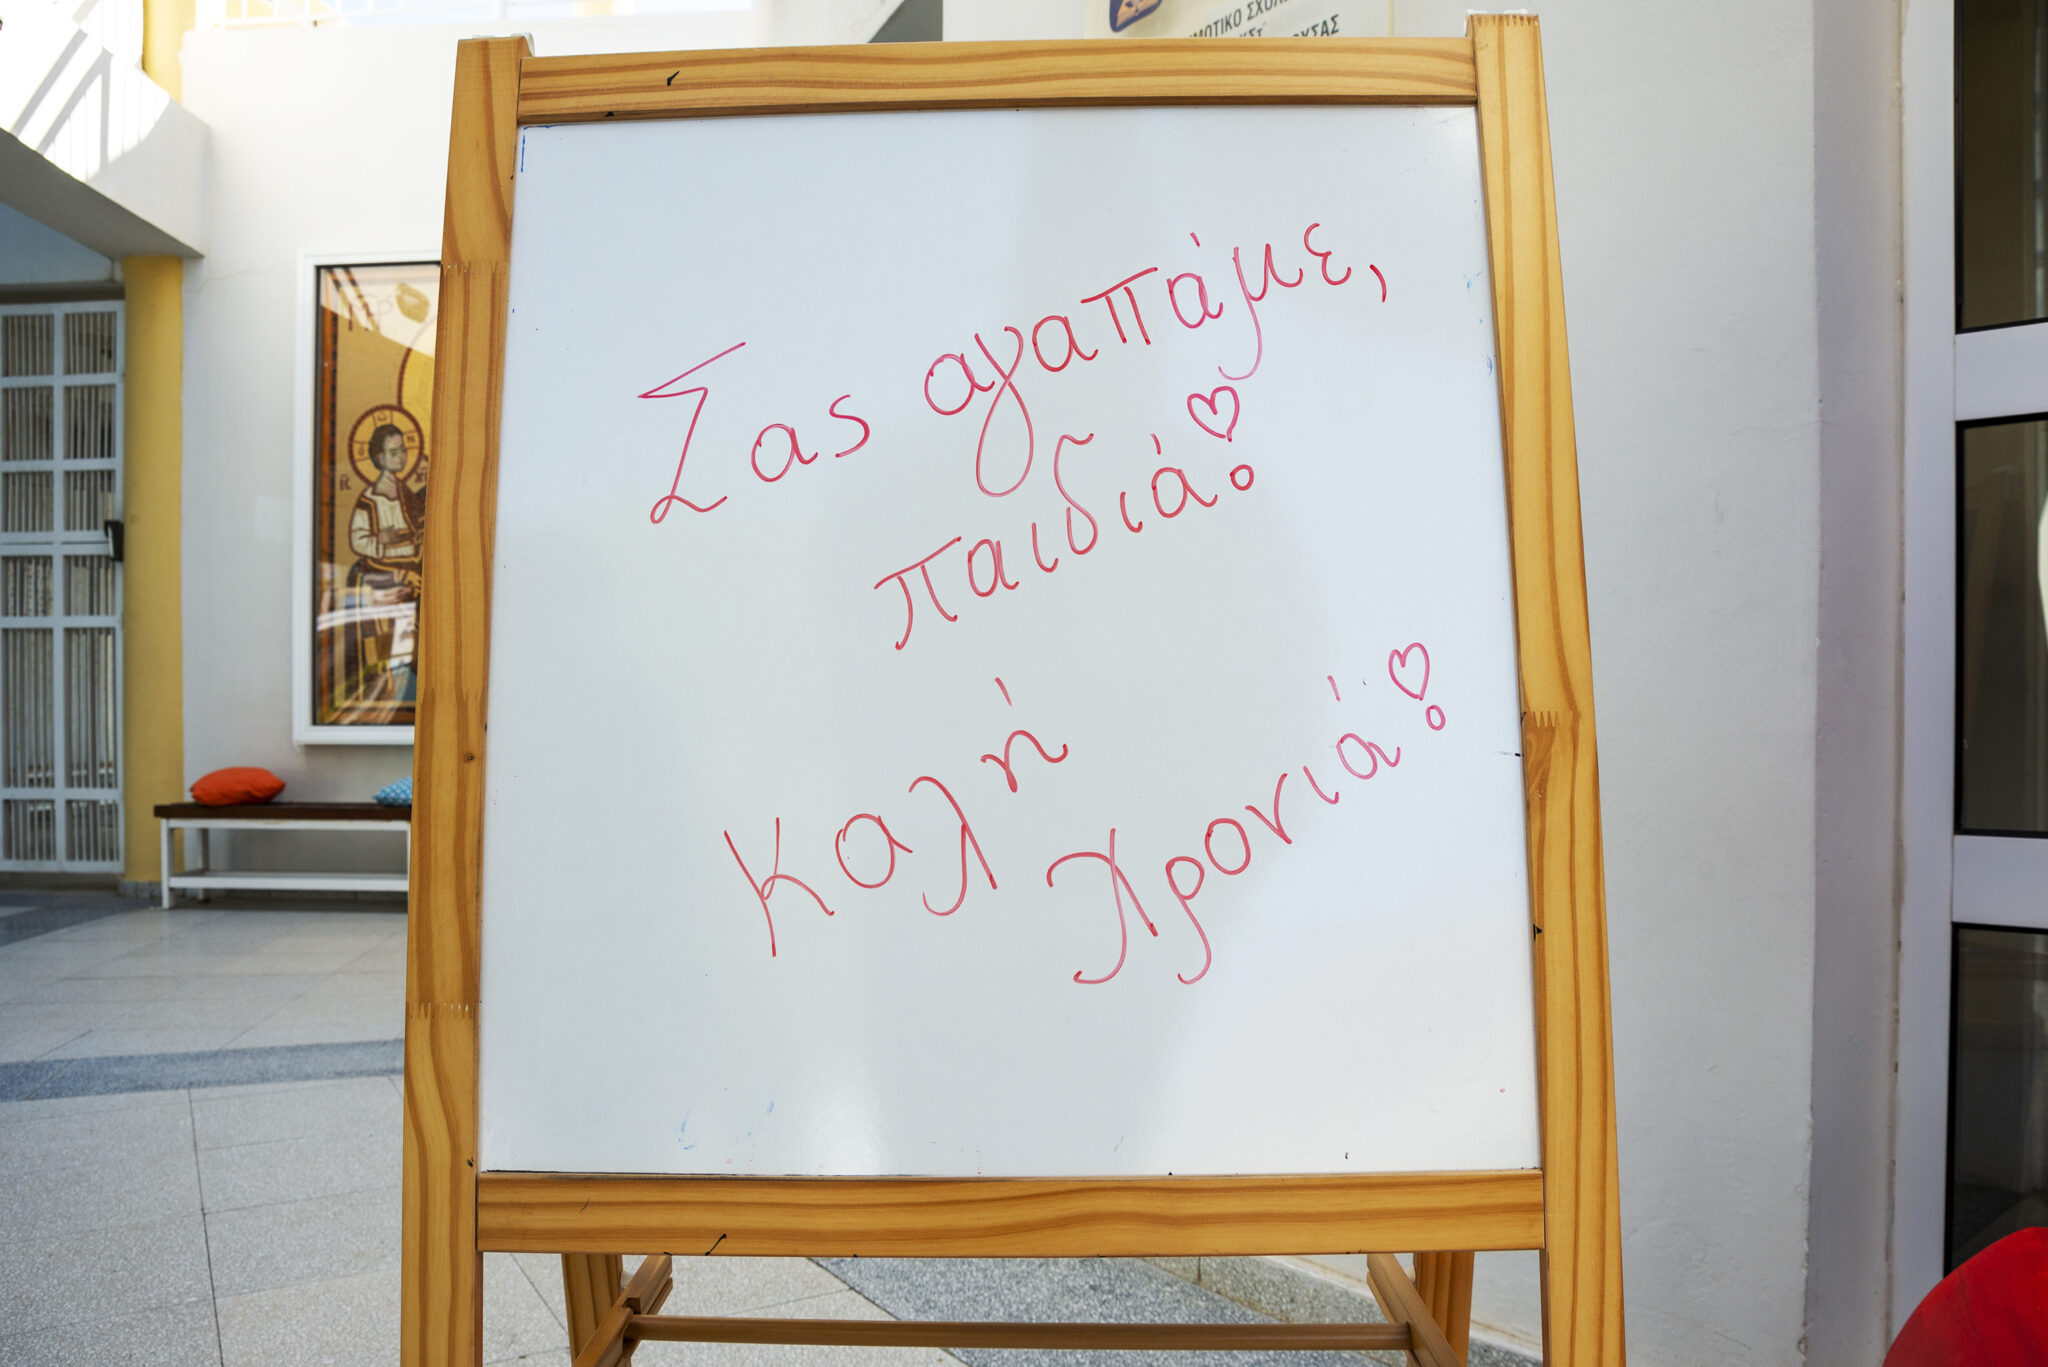 ΜΟΤΙΚΟ ΣΧΟΛΕ
ΟΥΣΑΣ
Σας αγαπάμε,
παιδιά!
Καλή
Χρονιά!